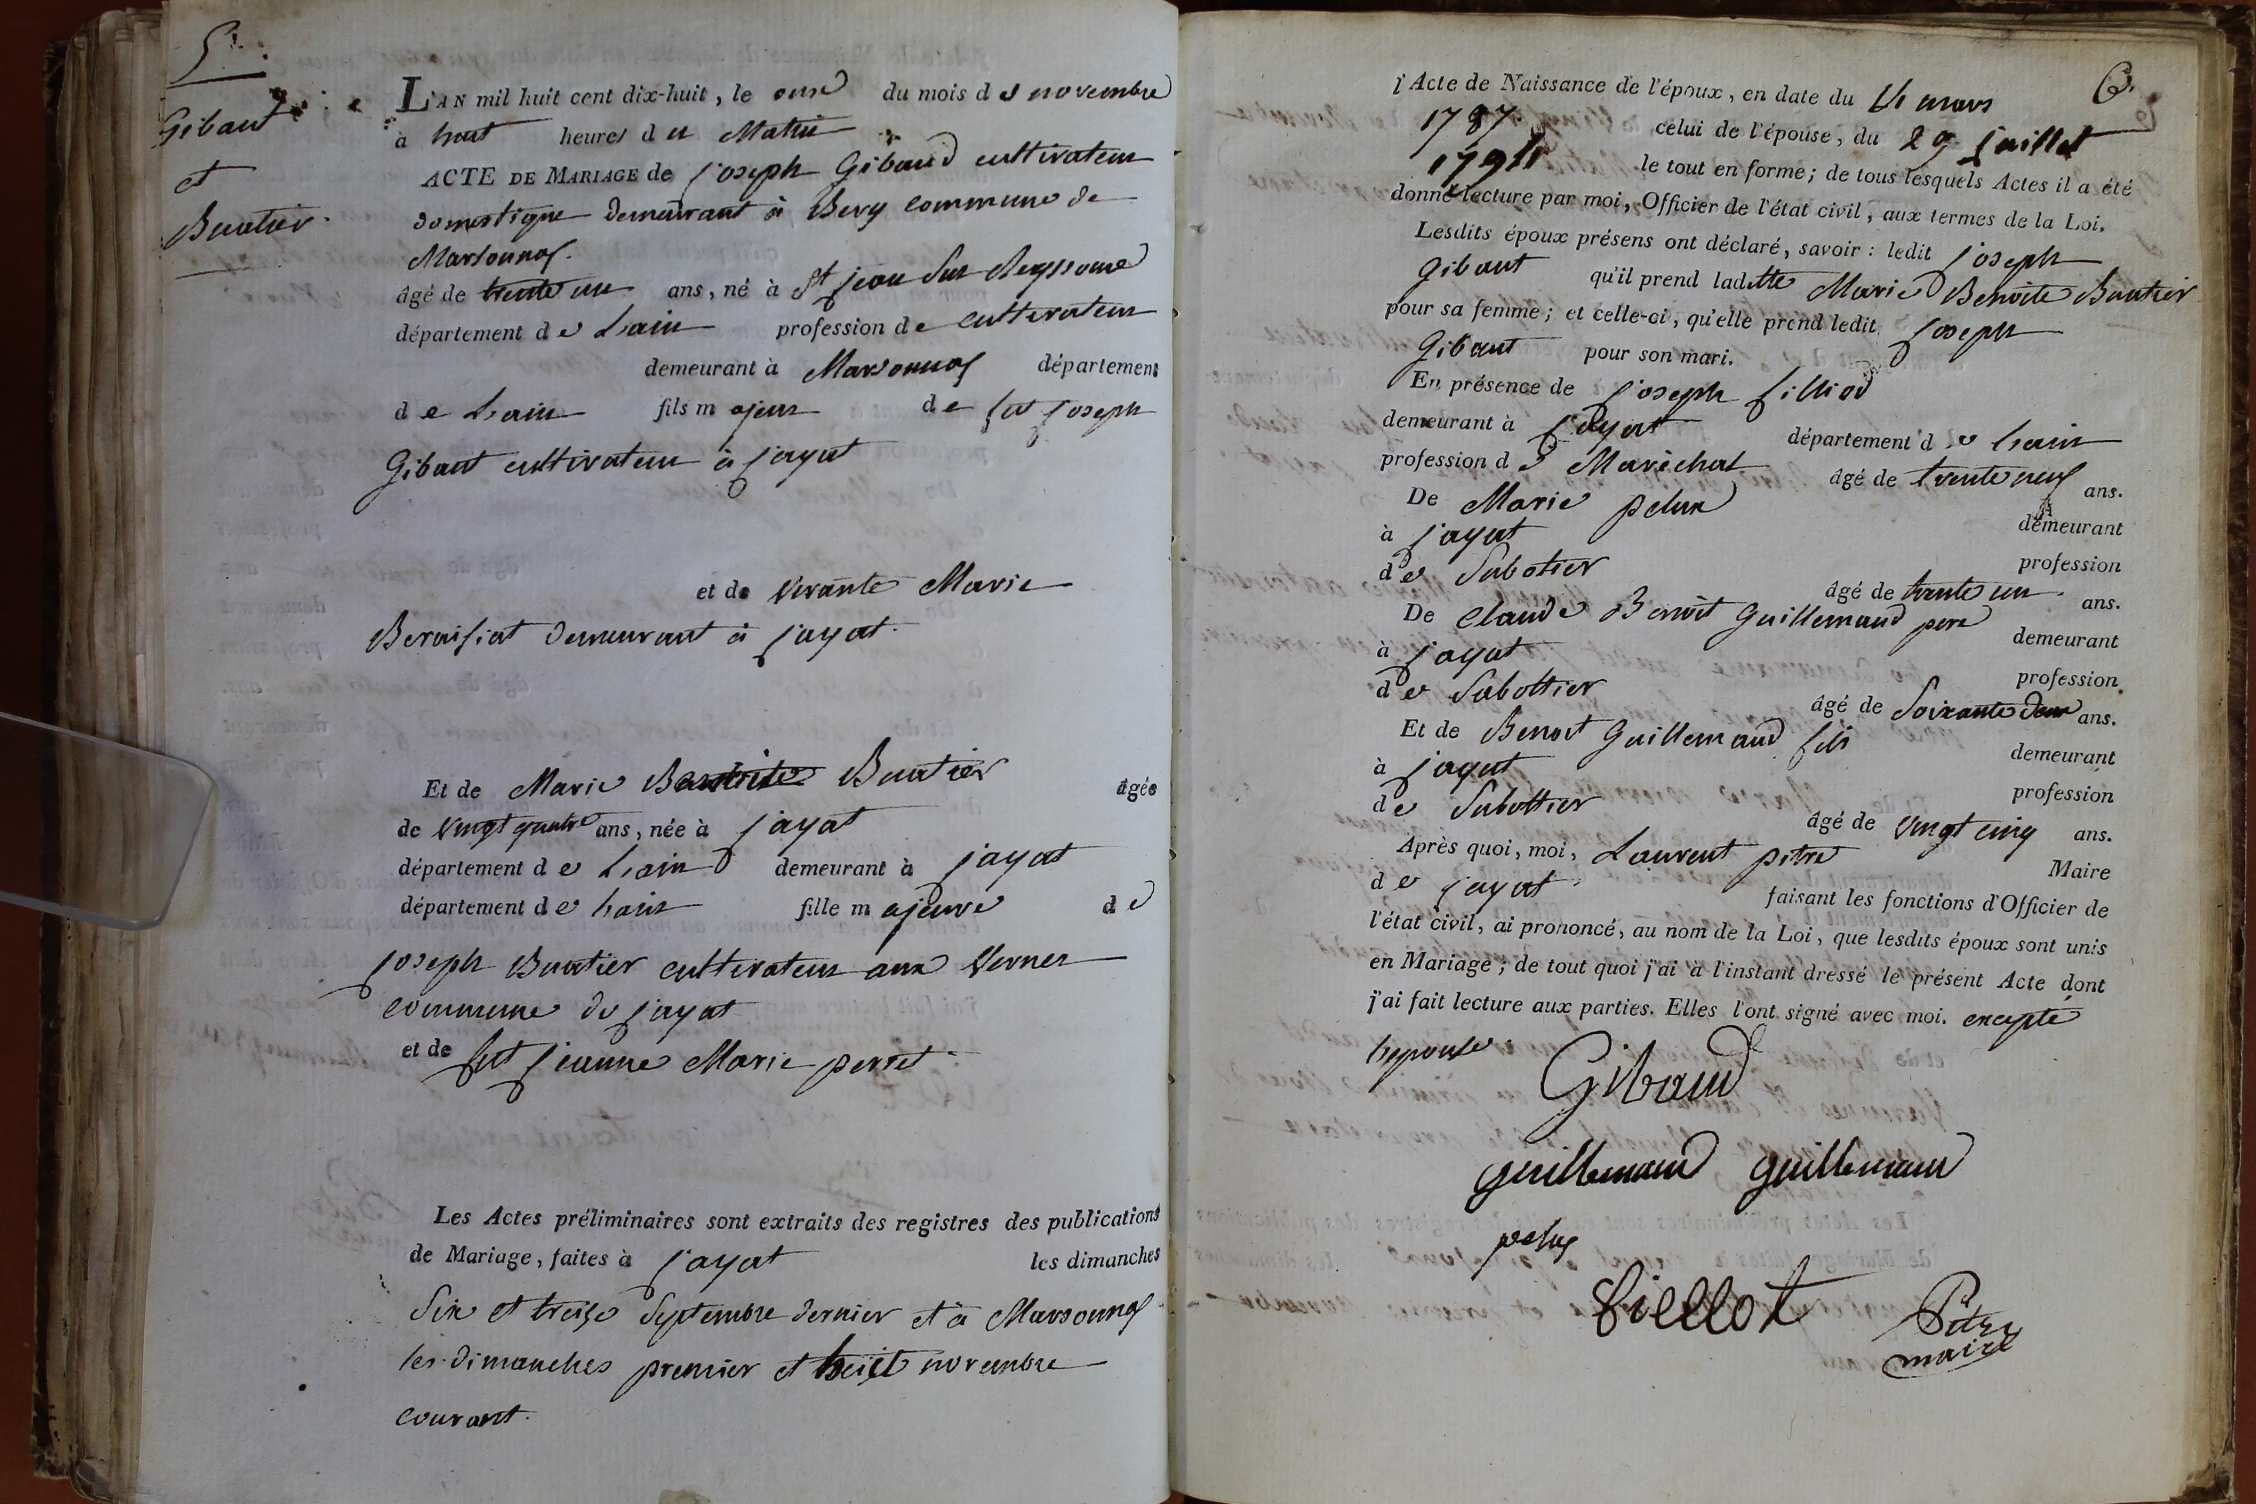 5.
Gibaut
et
Buatier.
L'AN mil huit cent dix-huit, le onze du mois de novembre
à huit heures du Matin
ACTE DE MARIAGE de joseph Gibaud cultivateur
domestique demeurant à Bevy commune de
Marsonnas.
âgé de trente un ans, né à St jean sur Reyssouze
département de Lain profession de cultivateur
demeurant à Marsonnas département
de Lain fils majeur de fut joseph
Gibaut cultivateur à jayat
et de vivante Marie
Beraisiat demeurant à jayat.
Et de Marie Benoite Buatier âgée
de vingt quatre ans, née à jayat
département de Lain demeurant à jayat
département de Lain fille majeure de
joseph Buatier cultivateur aux Vernes
commune de jayat
et de fut jeanne Marie perret
Les Actes préliminaires sont extraits des registres des publications
de Mariage, faites à jayat les dimanches
Six et treize Septembre dernier et à Marsonnas
les dimanches premier et huit novembre
courant.
6.
l'Acte de Naissance de l'époux, en date du 4 mars
1787. celui de l'épouse, du 29 juillet
1794 le tout en forme; de tous lesquels Actes il a été
donné lecture par moi, Officier de l'état civil, aux termes de la Loi.
Lesdits époux présens ont déclaré, savoir: ledit joseph
Gibaut qu'il prend laditte Marie Benoite Buatier
pour sa femme; et celle-ci, qu'elle prend ledit joseph
Gibaut pour son mari.
En présence de joseph filliod
demeurant à jayat département de Lain
profession de Maréchal âgé de trente neuf ans.
De Marie pelux demeurant
à jayat profession
de Sabotier âgé de trente un ans.
De Claude Benoit Guillemaud pere demeurant
à jayat profession
de Sabottier âgé de Soixante deux ans.
Et de Benoit Guillemaud fils demeurant
à jayat profession
de Sabottier âgé de vingt cinq ans.
Après quoi, moi, Laurent pitre Maire
de jayat faisant les fonctions d'Officier de
l'état civil, ai prononcé, au nom de la Loi, que lesdits époux sont unis
en Mariage; de tout quoi j'ai à l'instant dressé le présent Acte dont
j'ai fait lecture aux parties. Elles l'ont signé avec moi. excepté
lepouse.
Gibaud
guillemaud guillemaud
pelux
Pitre
maire